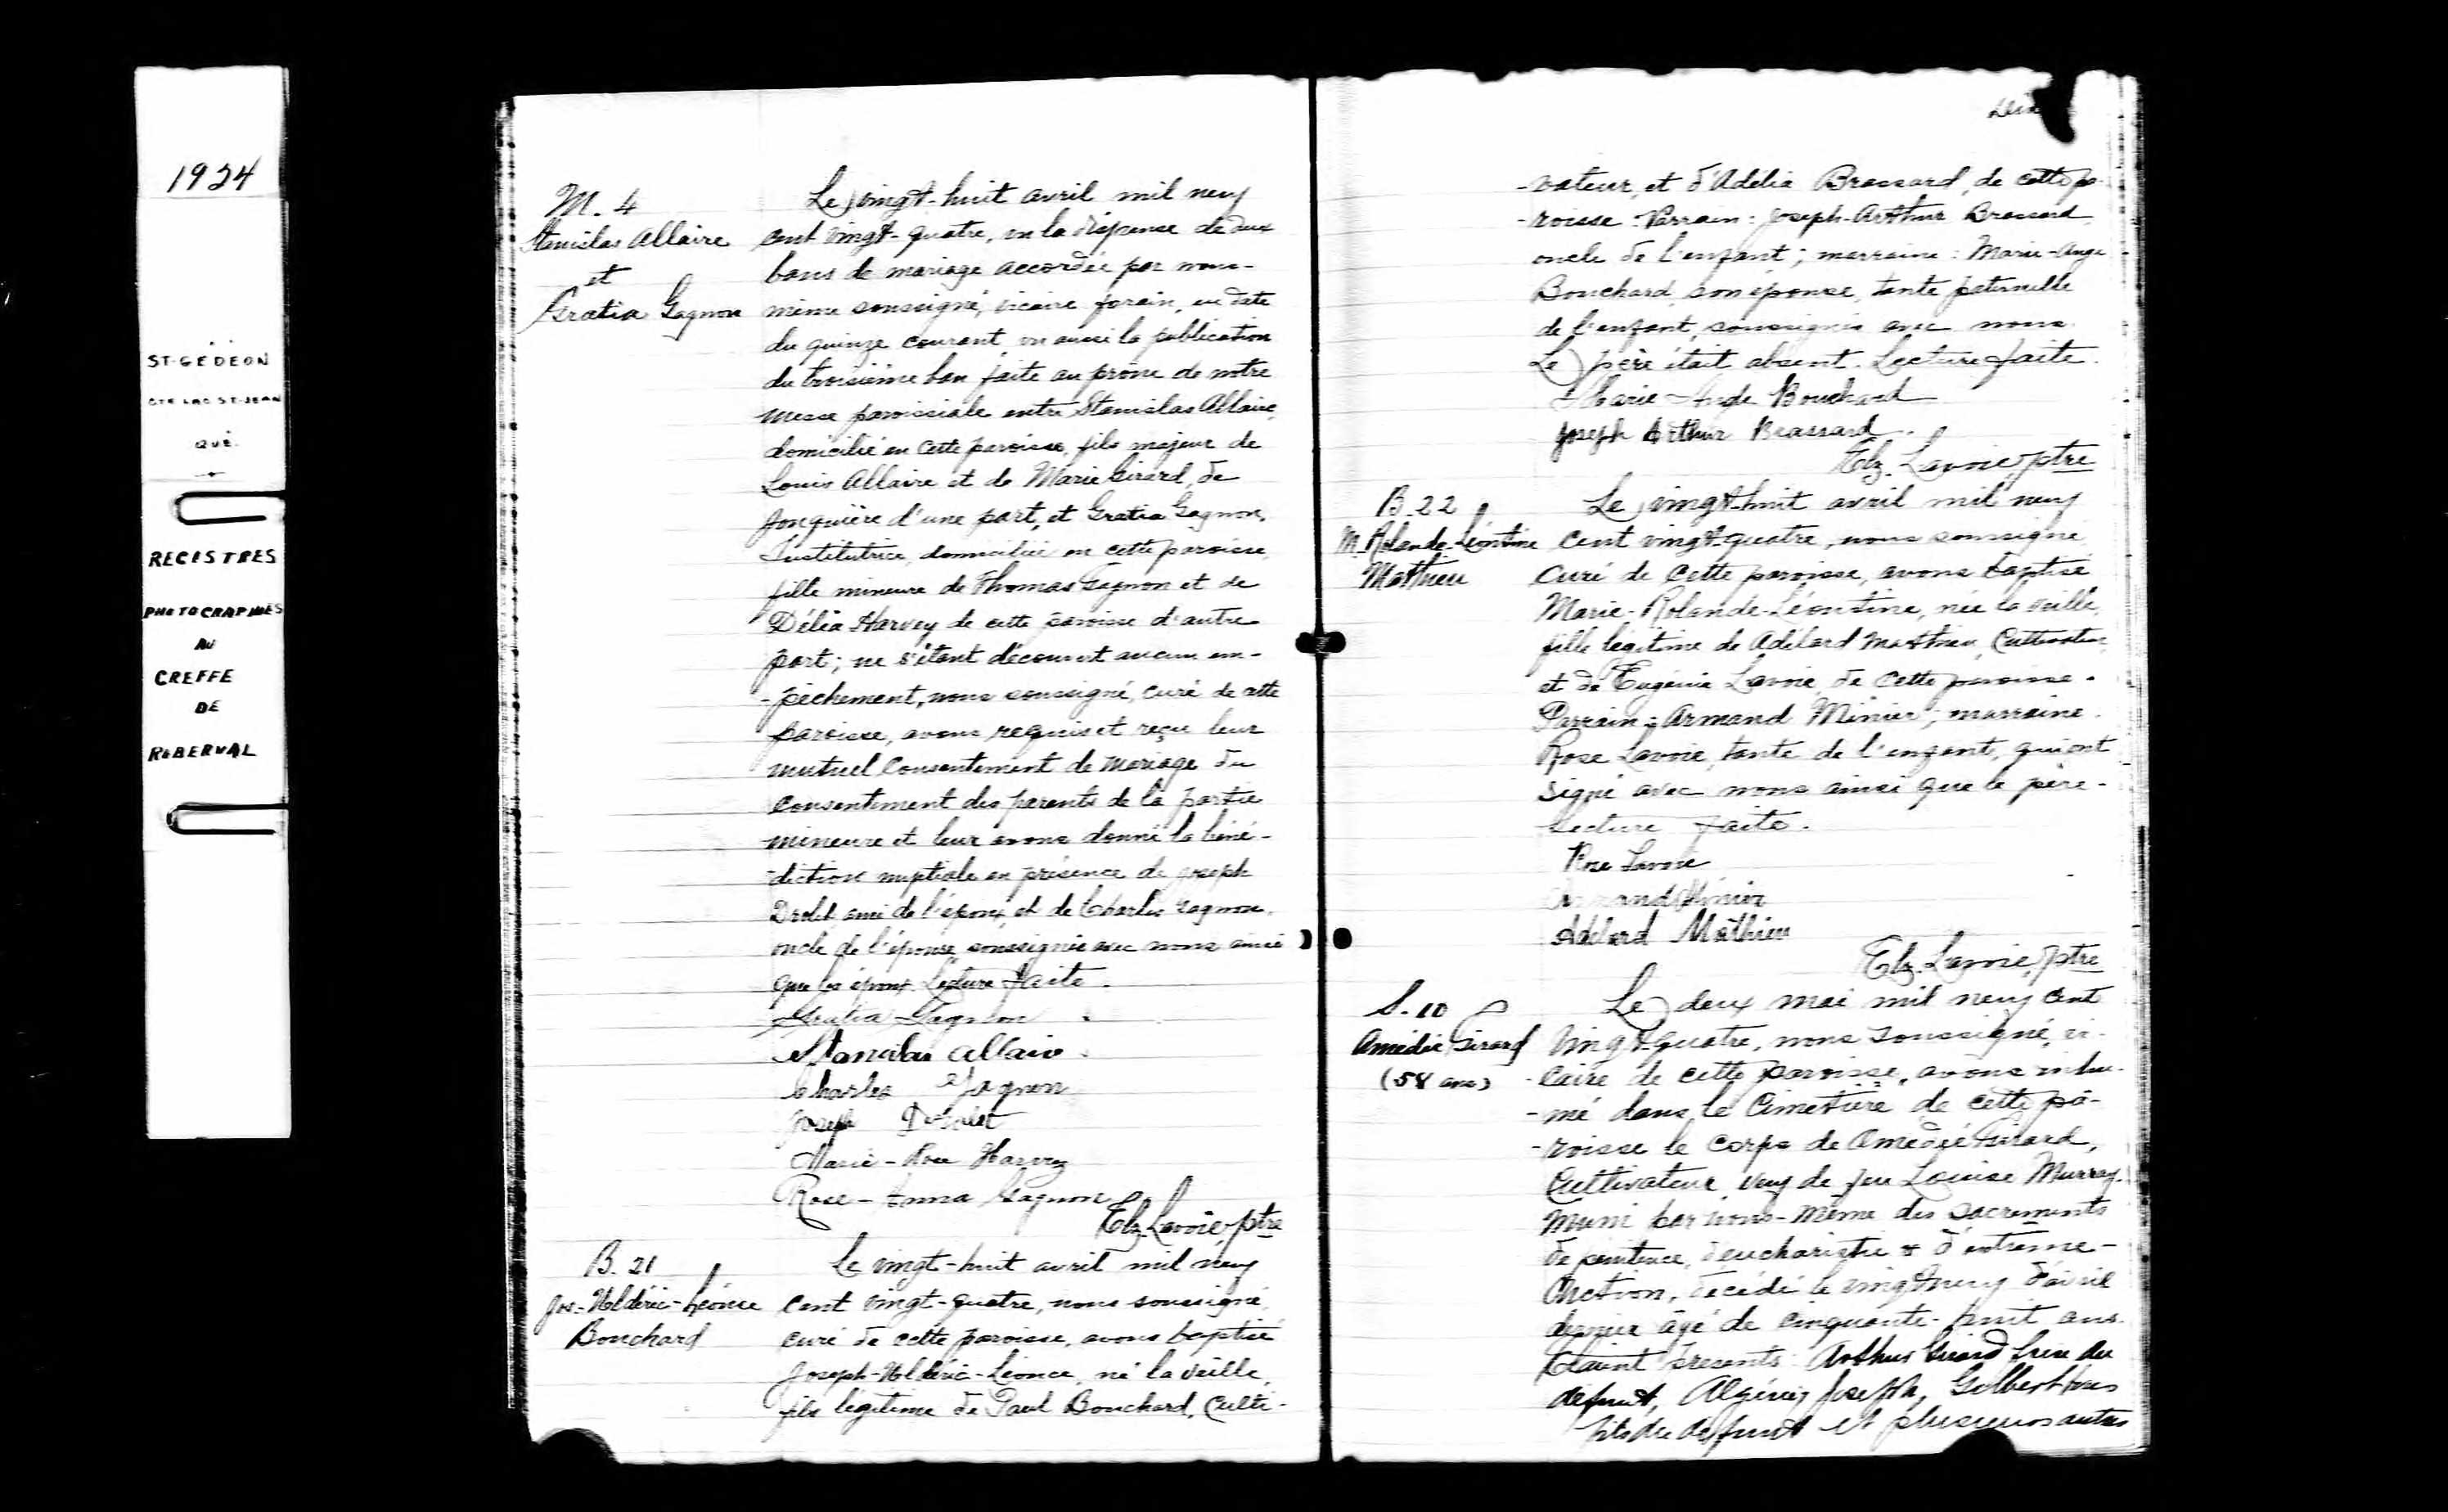 1924
ST-GÉDÉON
CTÉ LAC ST-JEAN
QUÉ.
REGISTRES
PHOTOGRAPHIÉS
AU
GREFFE
DE
ROBERVAL
M. 4
Stanislas Allaire
et
Gratia Gagnon
Le vingt-huit avril mil neuf
cent vingt-quatre, vu la dispense de deux
bans de mariage accordée par nous-
même soussigné, vicaire forain, en date
du quinze courant, vu aussi la publication
du troisième ban faite au prône de notre
messe paroissiale entre Stanislas Allaire,
domicilié en cette paroisse, fils majeur de
Louis Allaire et de Marie Girard, de
Jonquière d'une part, et Gratia Gagnon,
Institutrice, domiciliée en cette paroisse,
fille mineure de Thomas Gagnon et de
Délia Harvey de cette paroisse d'autre
part; ne s'étant découvert aucun em-
-pêchement, nous soussigné, curé de cette
paroisse, avons requis et reçu leur
mutuel consentement de mariage du
consentement des parents de la partie
mineure et leur avons donné la béné-
-diction nuptiale en présence de Joseph
Drolet, ami de l'époux, et de Charles Gagnon,
oncle de l'épouse, soussignés avec nous ainsi
que les époux. Lecture faite.
Gratia Gagnon
Stanislas Allaire
Charles Gagnon
Joseph Drolet
Marie-Rose Harvey
Rose-Anna Gagnon
Elz. Lavoie, ptre
B. 21
Jos.-Uldéric-Léonce
Bouchard
Le vingt-huit avril mil neuf
cent vingt-quatre, nous soussigné,
curé de cette paroisse, avons baptisé
Joseph-Uldéric-Léonce, né la veille,
fils légitime de Paul Bouchard, culti-
-vateur, et d'Adélia Brassard, de cette pa-
-roisse. Parrain: Joseph-Arthur Brassard,
oncle de l'enfant; marraine: Marie-Ange
Bouchard, son épouse, tante paternelle
de l'enfant, soussignés avec nous.
Le père était absent. Lecture faite.
Marie-Ange Bouchard
Joseph Arthur Brassard.
Elz. Lavoie, ptre
B. 22
M. Rolande-Léontine
Mathieu
Le vingt-huit avril mil neuf
cent vingt-quatre, nous soussigné,
curé de cette paroisse, avons baptisé
Marie-Rolande-Léontine, née la veille,
fille légitime de Adélard Mathieu, cultivateur,
et de Eugénie Lavoie, de cette paroisse.
Parrain: Armand Minier; marraine
Rose Lavoie, tante de l'enfant, qui ont
signé avec nous ainsi que le père.
Lecture faite.
Rose Lavoie
Armand Minier
Adélard Mathieu
Elz. Lavoie, ptre
S. 10
Amédée Girard
(58 ans)
Le deux mai mil neuf cent
vingt-quatre, nous soussigné, vi-
-caire de cette paroisse, avons inhu-
-mé dans le cimetière de cette pa-
-roisse le corps de Amédée Girard,
cultivateur, veuf de feu Louise Murray,
muni par nous-même des sacrements
de pénitence, d'eucharistie & d'extrême-
onction, décédé le vingt-neuf d'avril
dernier âgé de cinquante-huit ans.
Etaient présents: Arthur Girard frère du
défunt, Joseph, Gilbert
fils du défunt et plusieurs autres